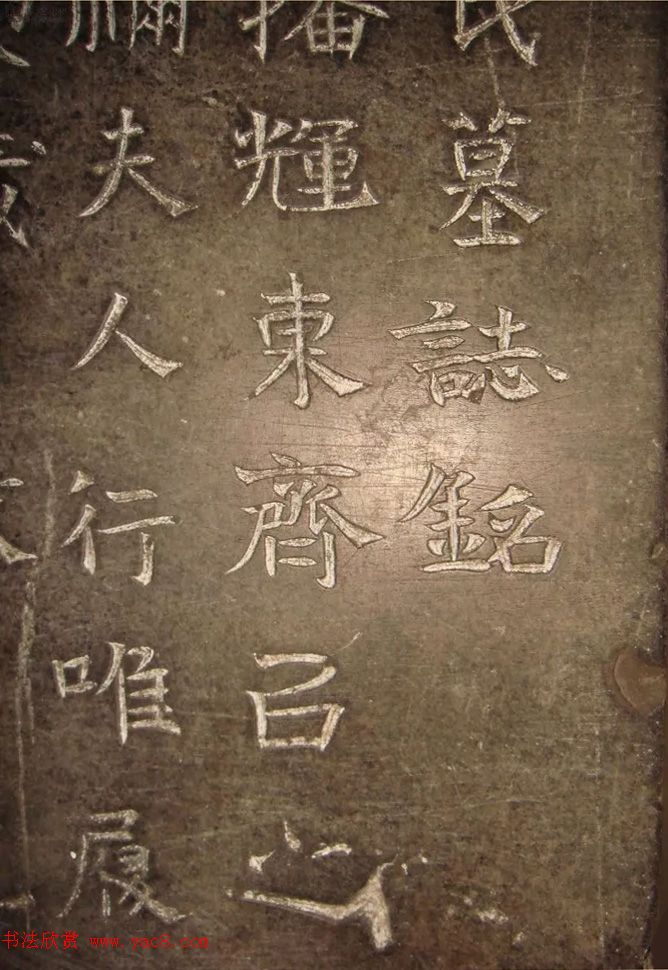 氏墓誌銘
播輝東齊
夫人行唯履
书法欣赏 www.yac8.com